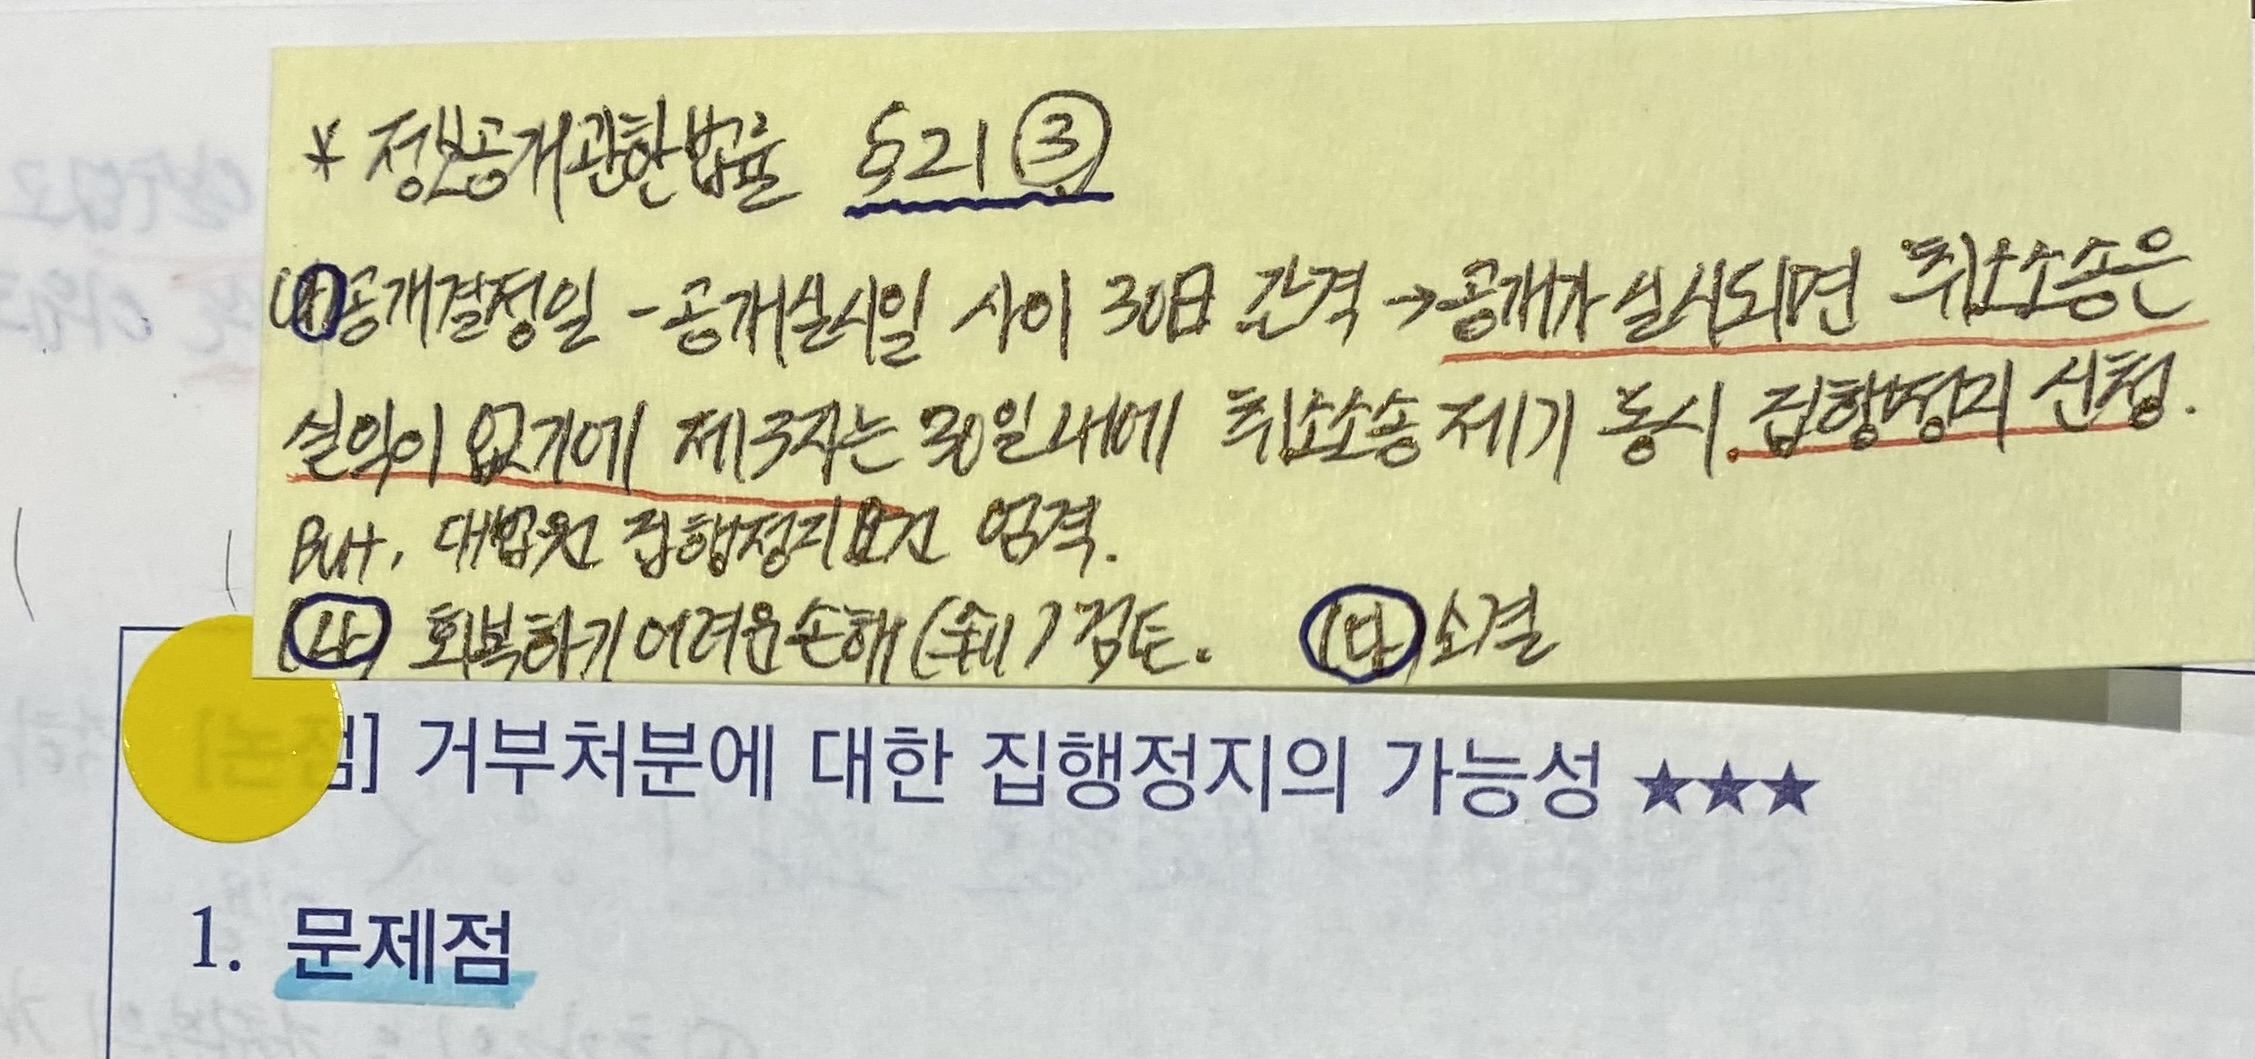 * 정보공개관한법률 §21 ③
(가) 공개결정일 - 공개실시일 사이 30日 간격 → 공개가 실시되면 취소소송은
실익이 없기에 제3자는 30일내에 취소소송 제기 동시. 집행정지 신청.
But, 대법원 집행정지요건 엄격.
(나) 회복하기 어려운 손해 ( ) 검토. (다) 소결
점] 거부처분에 대한 집행정지의 가능성 ★★★
1. 문제점